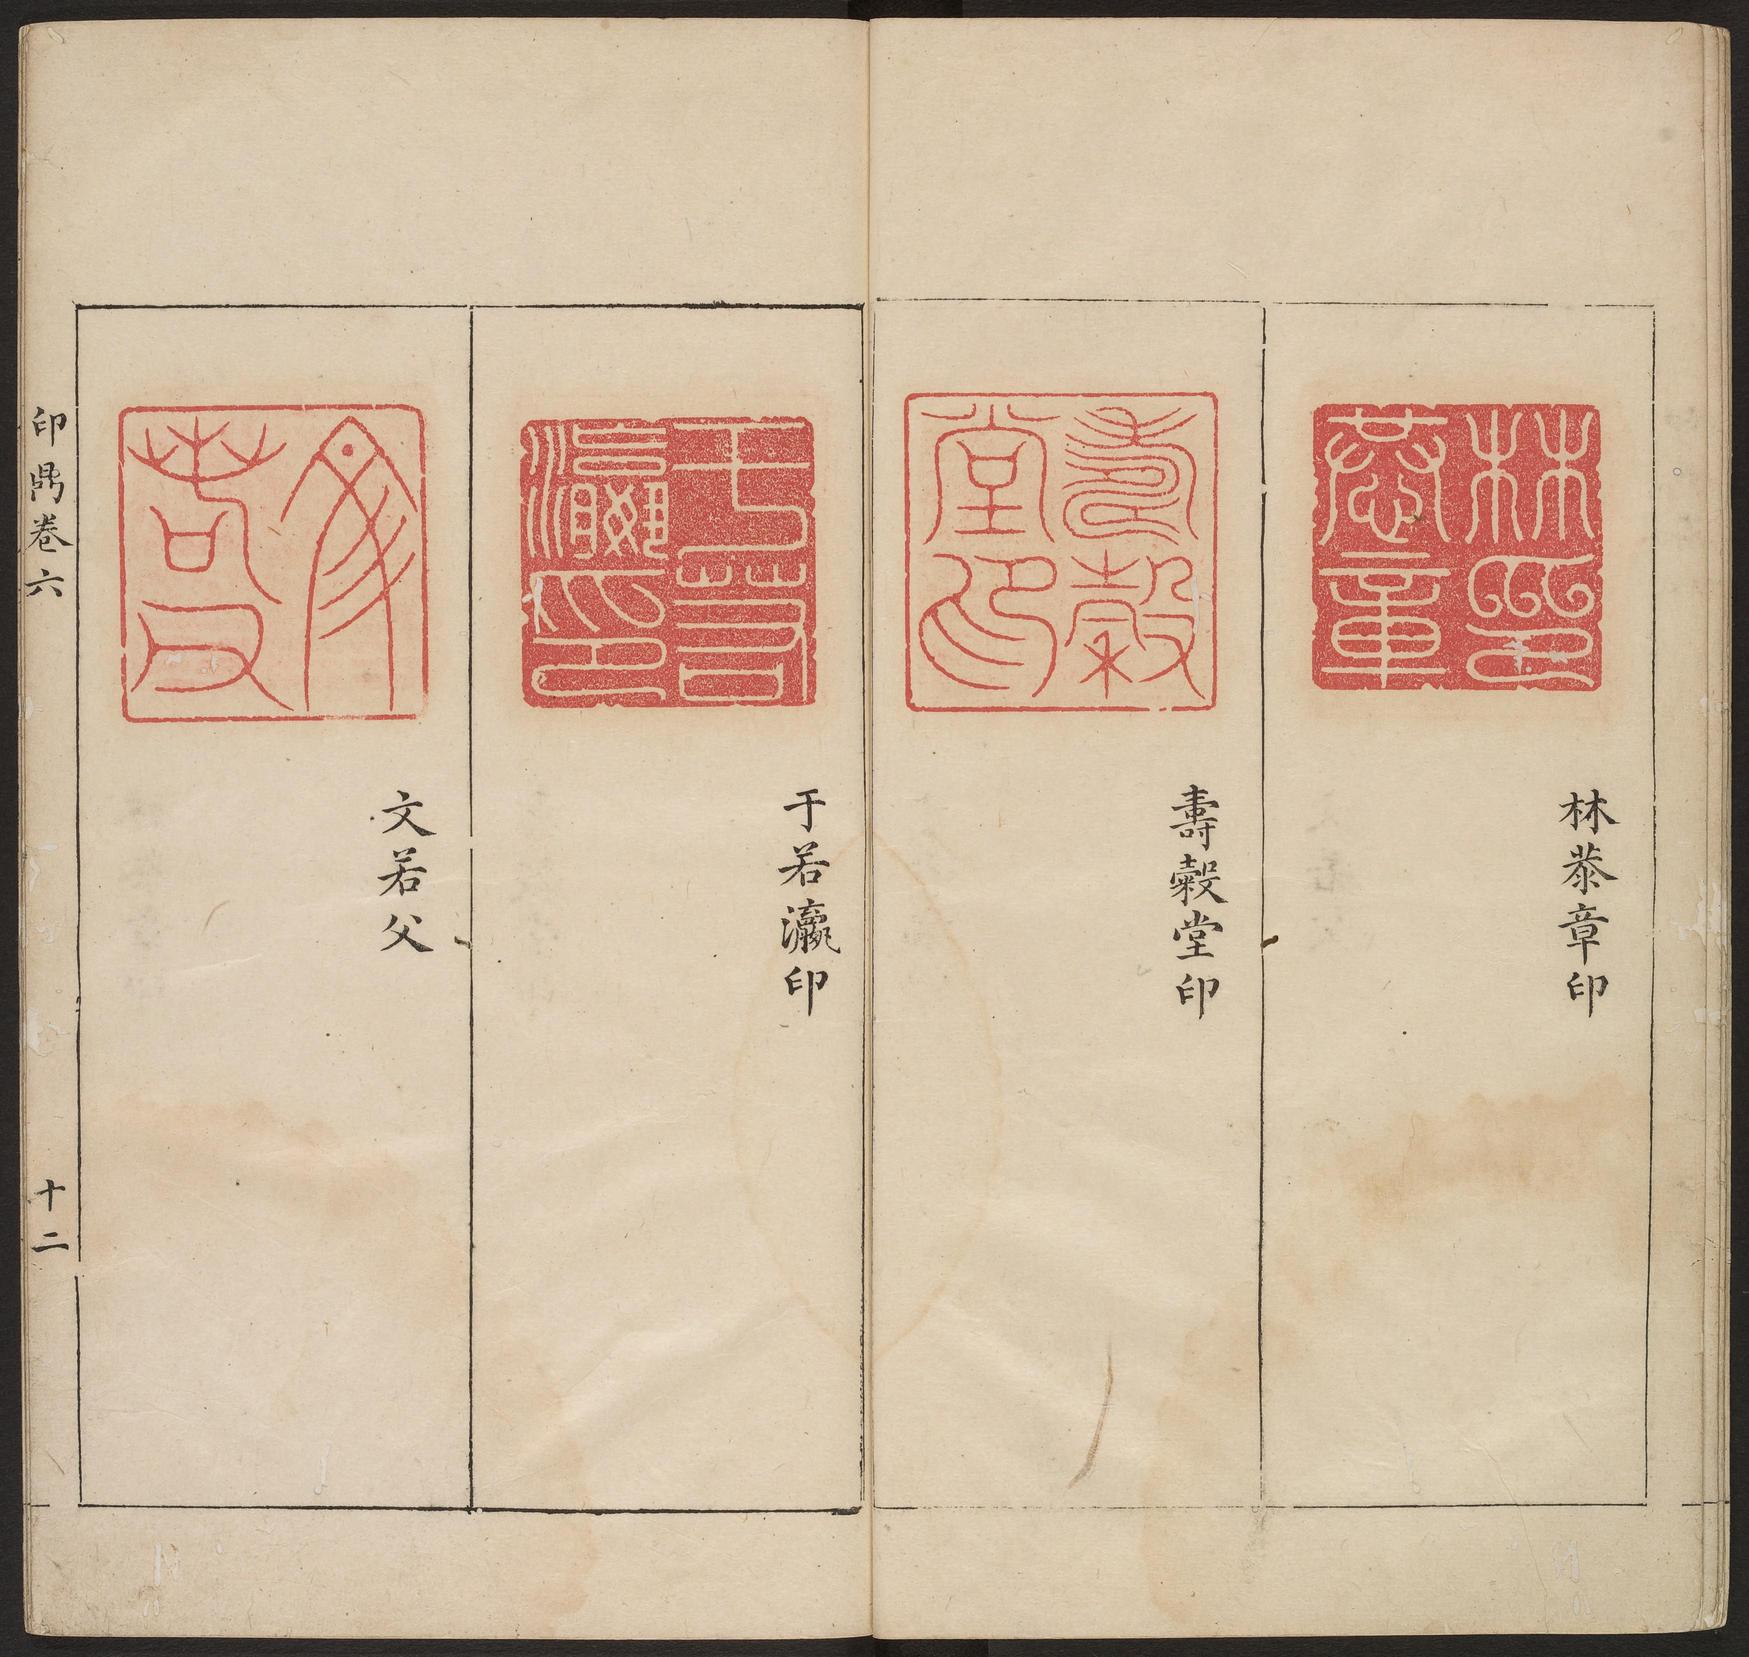 林㳟章印
壽糓堂印
于若瀛印
文若父
印鼎卷六
十二